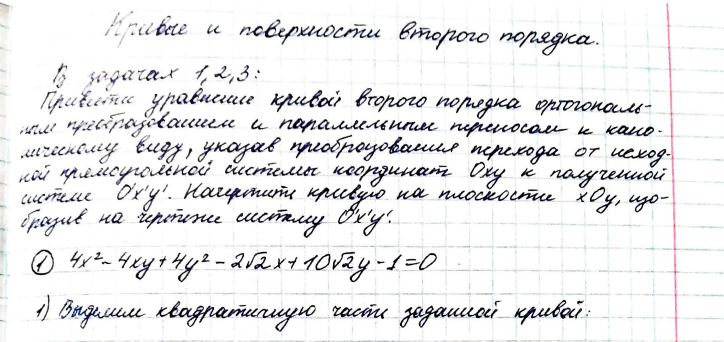 Кривые и поверхности второго порядка.
В задачах 1,2,3:
Привести уравнение кривой второго порядка ортогональ-
ным преобразованием и параллельным переносом к кано-
ническому виду, указав преобразования перехода от исход-
ной прямоугольной системы координат Oxy к полученной
системе O'x'y'. Начертить кривую на плоскости xOy, изо-
бразив на чертеже систему O'x'y'.
① 4x²-4xy+4y²-2√2x+10√2y-1=0
1) Выделим квадратичную часть заданной кривой: